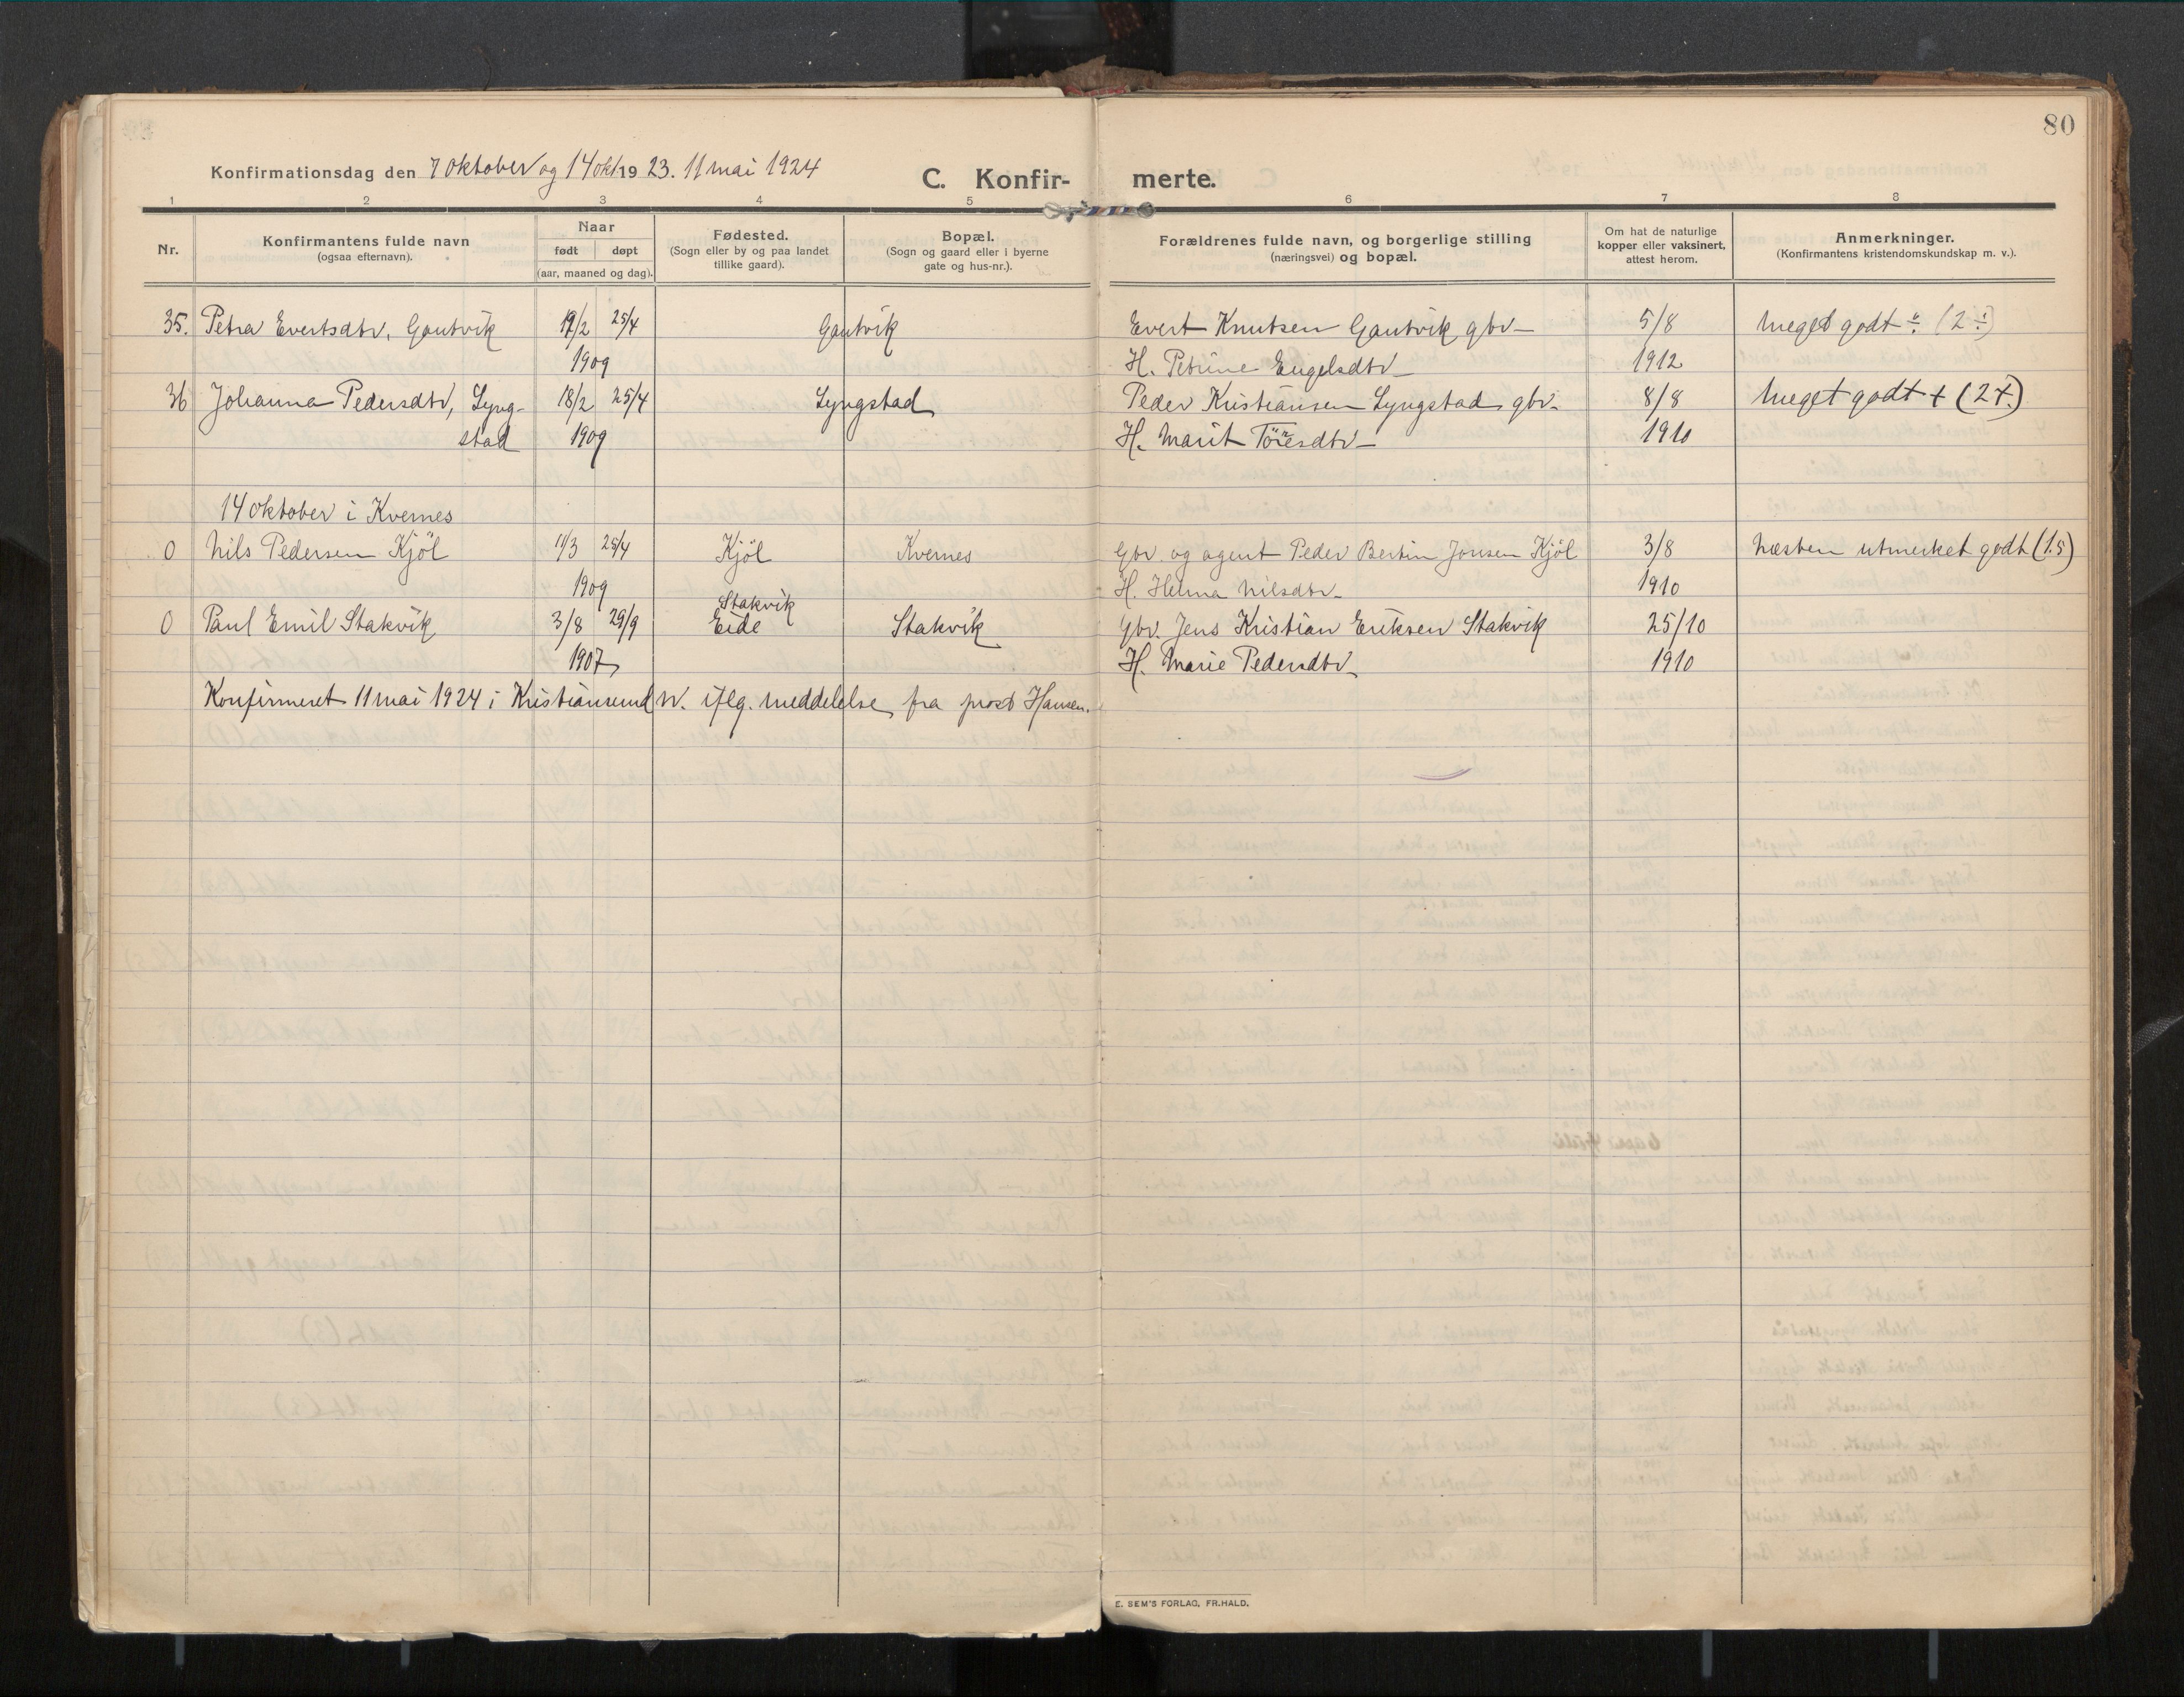 80
Konfirmationsdag den 7 oktober og 14 okt. 19 23. 11 mai 1924
C. Konfir- merte.
1 2 3 4 5 6 7 8
Nr.
Konfirmantens fulde navn
(ogsaa efternavn).
Naar
født døpt
(aar, maaned og dag).
Fødested.
(Sogn eller by og paa landet
tillike gaard).
Bopæl.
(Sogn og gaard eller i byerne
gate og hus-nr.).
Forældrenes fulde navn, og borgerlige stilling
(næringsvei) og bopæl.
Om hat de naturlige
kopper eller vaksinert,
attest herom.
Anmerkninger.
(Konfirmantens kristendomskundskap m. v.).
35. Petra Evertsdtr. Gautvik 17/2 25/4 Gautvik Evert Knutsen Gautvik gbr. 5/8 Meget godt ÷ (2 ÷)
1909 H. Petrine Engelsdtr. 1912
36 Johanna Pedersdtr, Lyng- 18/2 25/4 Lyngstad Peder Kristiansen Lyngstad gbr. 8/8 Meget godt + (2 +)
stad 1909 H. Marit Töresdtr. 1910
14 oktober i Kvernes
0 Nils Pedersen Kjöl 11/3 25/4 Kjöl Kvernes Gbr. og agent Peder Bertin Jonsen Kjöl 3/8 Næsten utmerket godt (1.5)
1909 H. Helma Nilsdtr. 1910
Stakvik
0 Paul Emil Stakvik 3/8 29/9 Eide Stakvik Gbr. Jens Kristian Eriksen Stakvik 25/10
1907 H. Marie Pedersdtr. 1910
Konfirmeret 11 mai 1924 i Kristiansund N. iflg. meddelelse fra prost Hansen.
E. SEM'S FORLAG, FR.HALD.